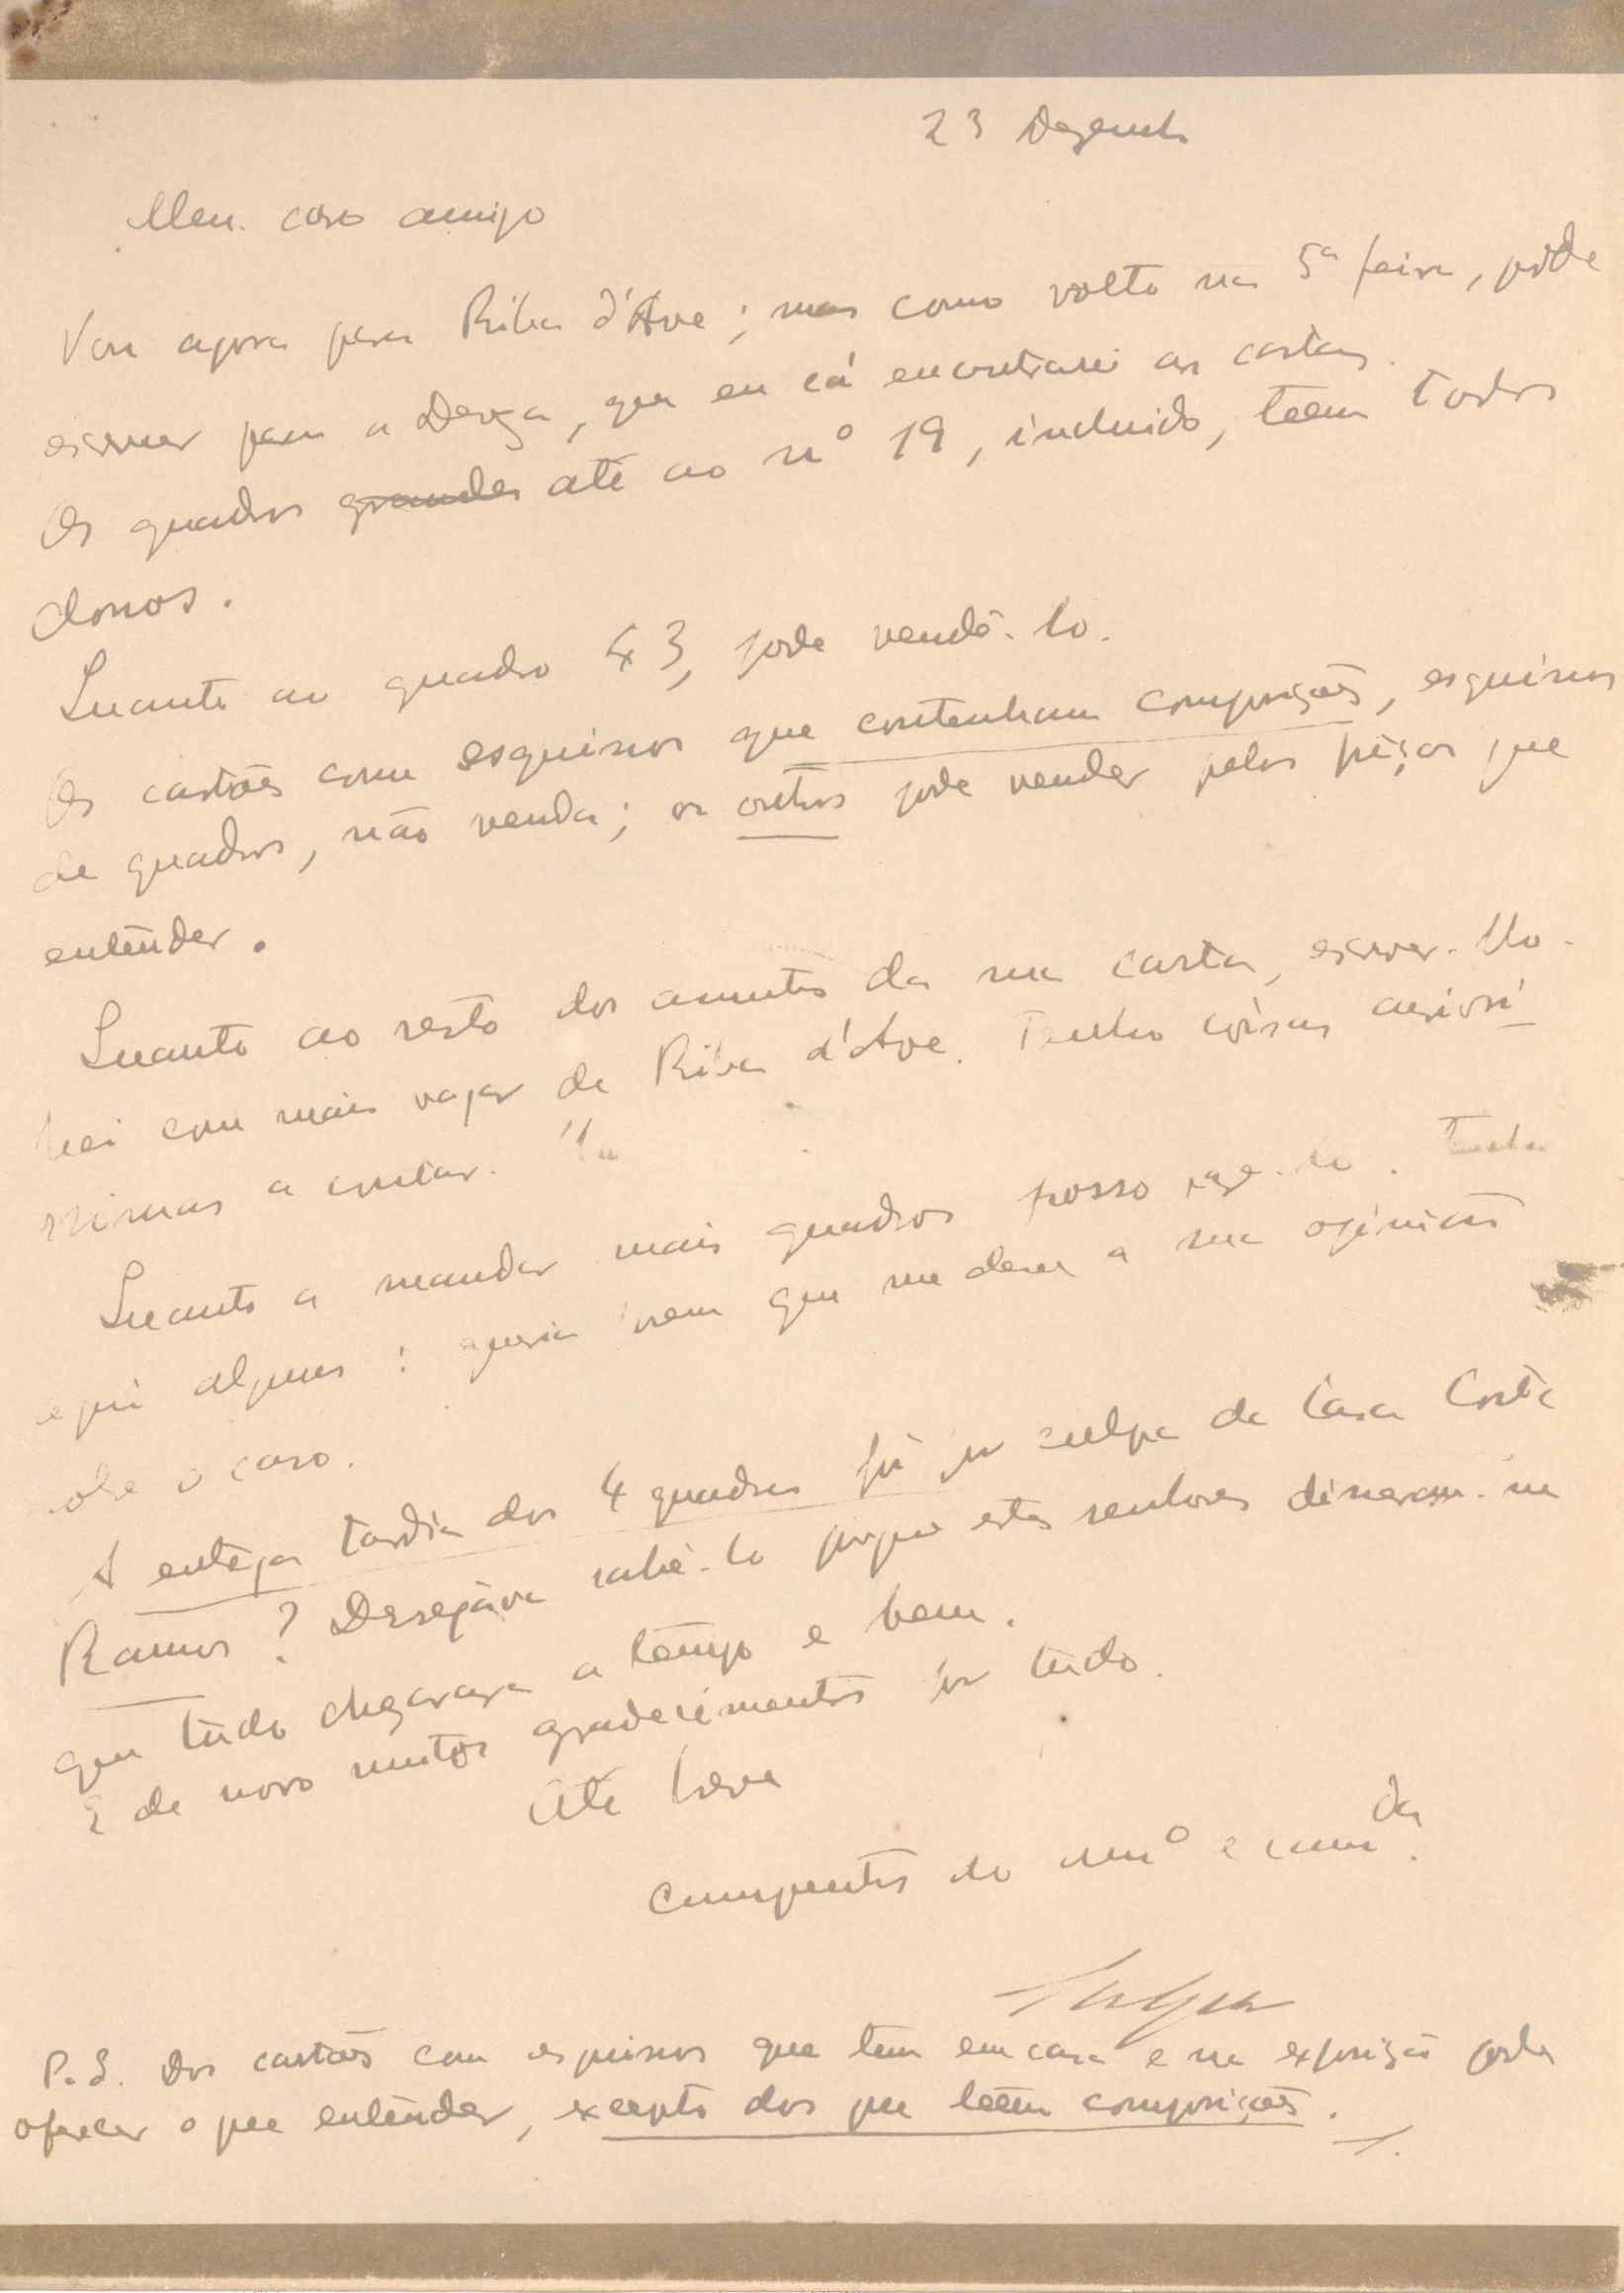 23 Dezembro
Meu caro amigo
Vou agora para Riba d'Ave; mas como volto na 5ª feira, póde
escrever para a Deveza, que eu cá encontrarei as cartas.
Os quadros grandes até ao nº 19, incluido, teem todos
donos.
Quanto ao quadro 43, pode vendê-lo.
Os cartões com esquissos que contenham composições, esquissos
de quadros, não venda; os outros pode vender pelos preços que
entender.
Quanto ao resto dos assuntos da sua carta, escrever-lho-
hei com mais vagar de Riba d'Ave. Tenho coisas curiosi-
ssimas a contar.
Quanto a mandar mais quadros posso faze-lo. Tenho
aqui alguns: queria porem que me desse a sua opinião
sobre o caso.
A entrega tardia dos 4 quadros foi por culpa da Casa Costa
Ramos? Desejava sabê-lo porque estes senhores disseram-me
que tudo chegara a tempo e bem.
E de novo muitos agradecimentos por tudo.
Até breve
Cumprentos do Amº e camda.
P.S. Dos cartões com esquissos que tem em casa e na exposição pode
oferecer o que entender, excepto dos que teem composições.
T.